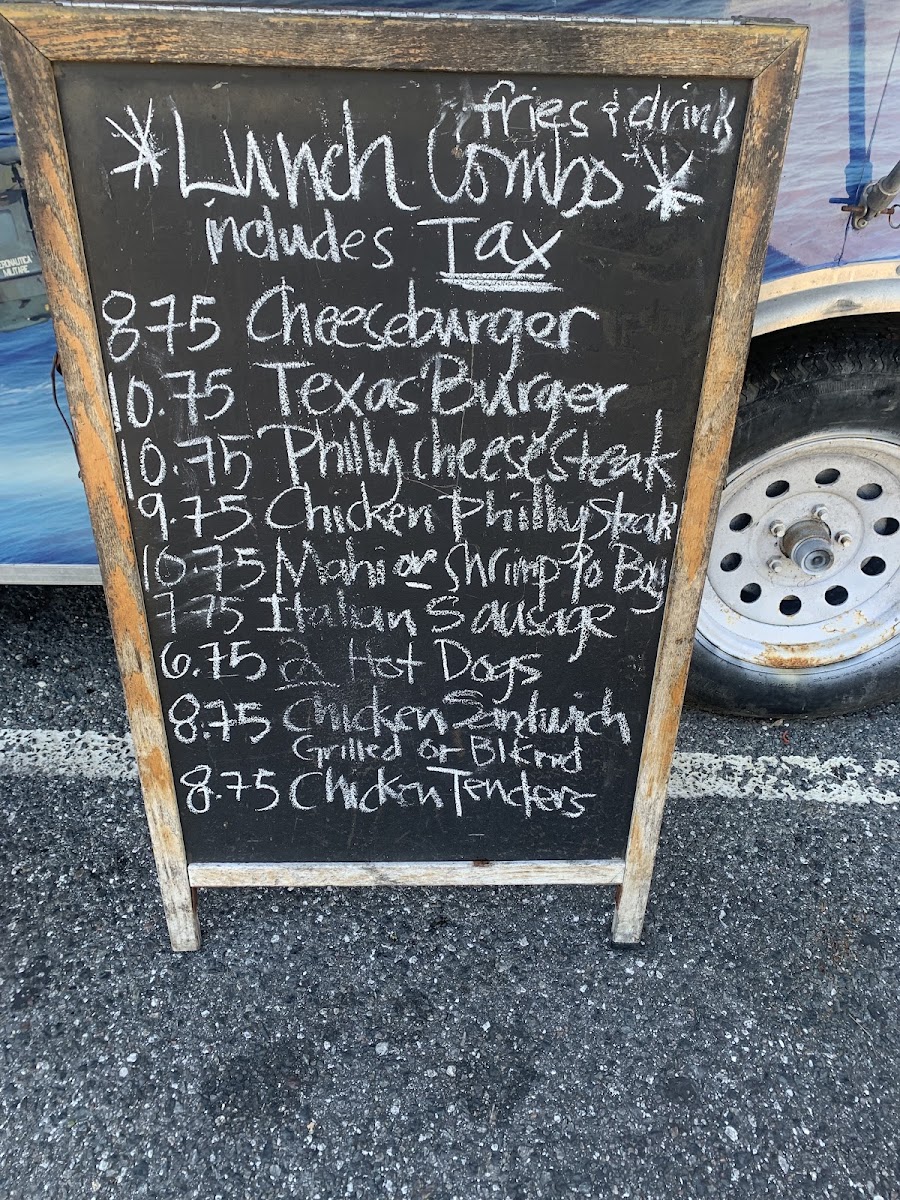 fries & drink
*Lunch Combs*
includes Tax
8.75 Cheeseburger
10.75 Texas Burger
10.75 Philly cheesesteak
9.75 Chicken Phillysteak
10.75 Mahi or Shrimp Po Boy
7.75 Italian Sausage
6.75 2 Hot Dogs
8.75 Chicken Sandwich
Grilled or Blknd
8.75 Chicken Tenders
AERONAUTICA
MILITARE